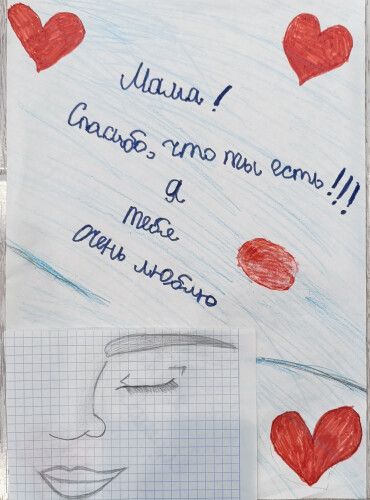 Мама!
Спасибо, что ты есть!!!
Я
тебя
очень люблю